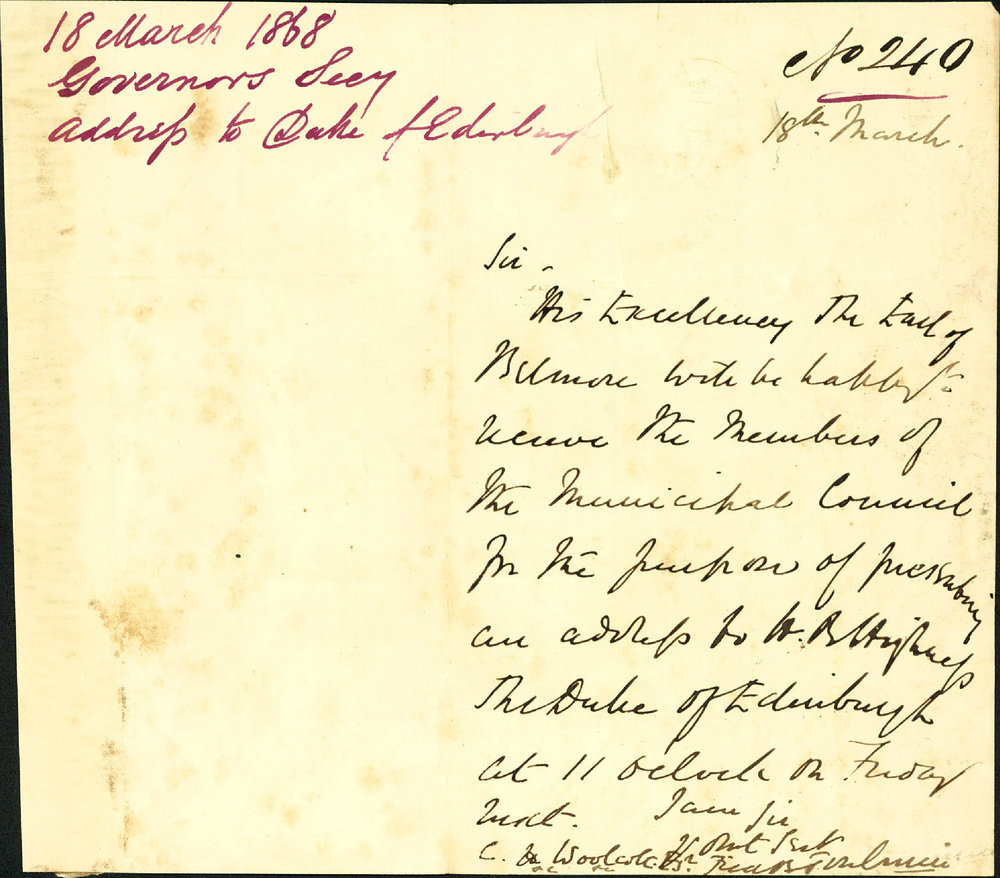 18 March 1868
Governors Secy
Address to Duke of Edinburgh
No 240
18th March.
Sir,
His Excellency the Earl of
Belmore will be happy to
receive the Members of
the Municipal Council
for the purpose of presenting
an address to H. R. Highness
The Duke of Edinburgh
at 11 oclock on Friday
next. I am Sir
Yr Obt Sert
C. H. Woolcott Esq.